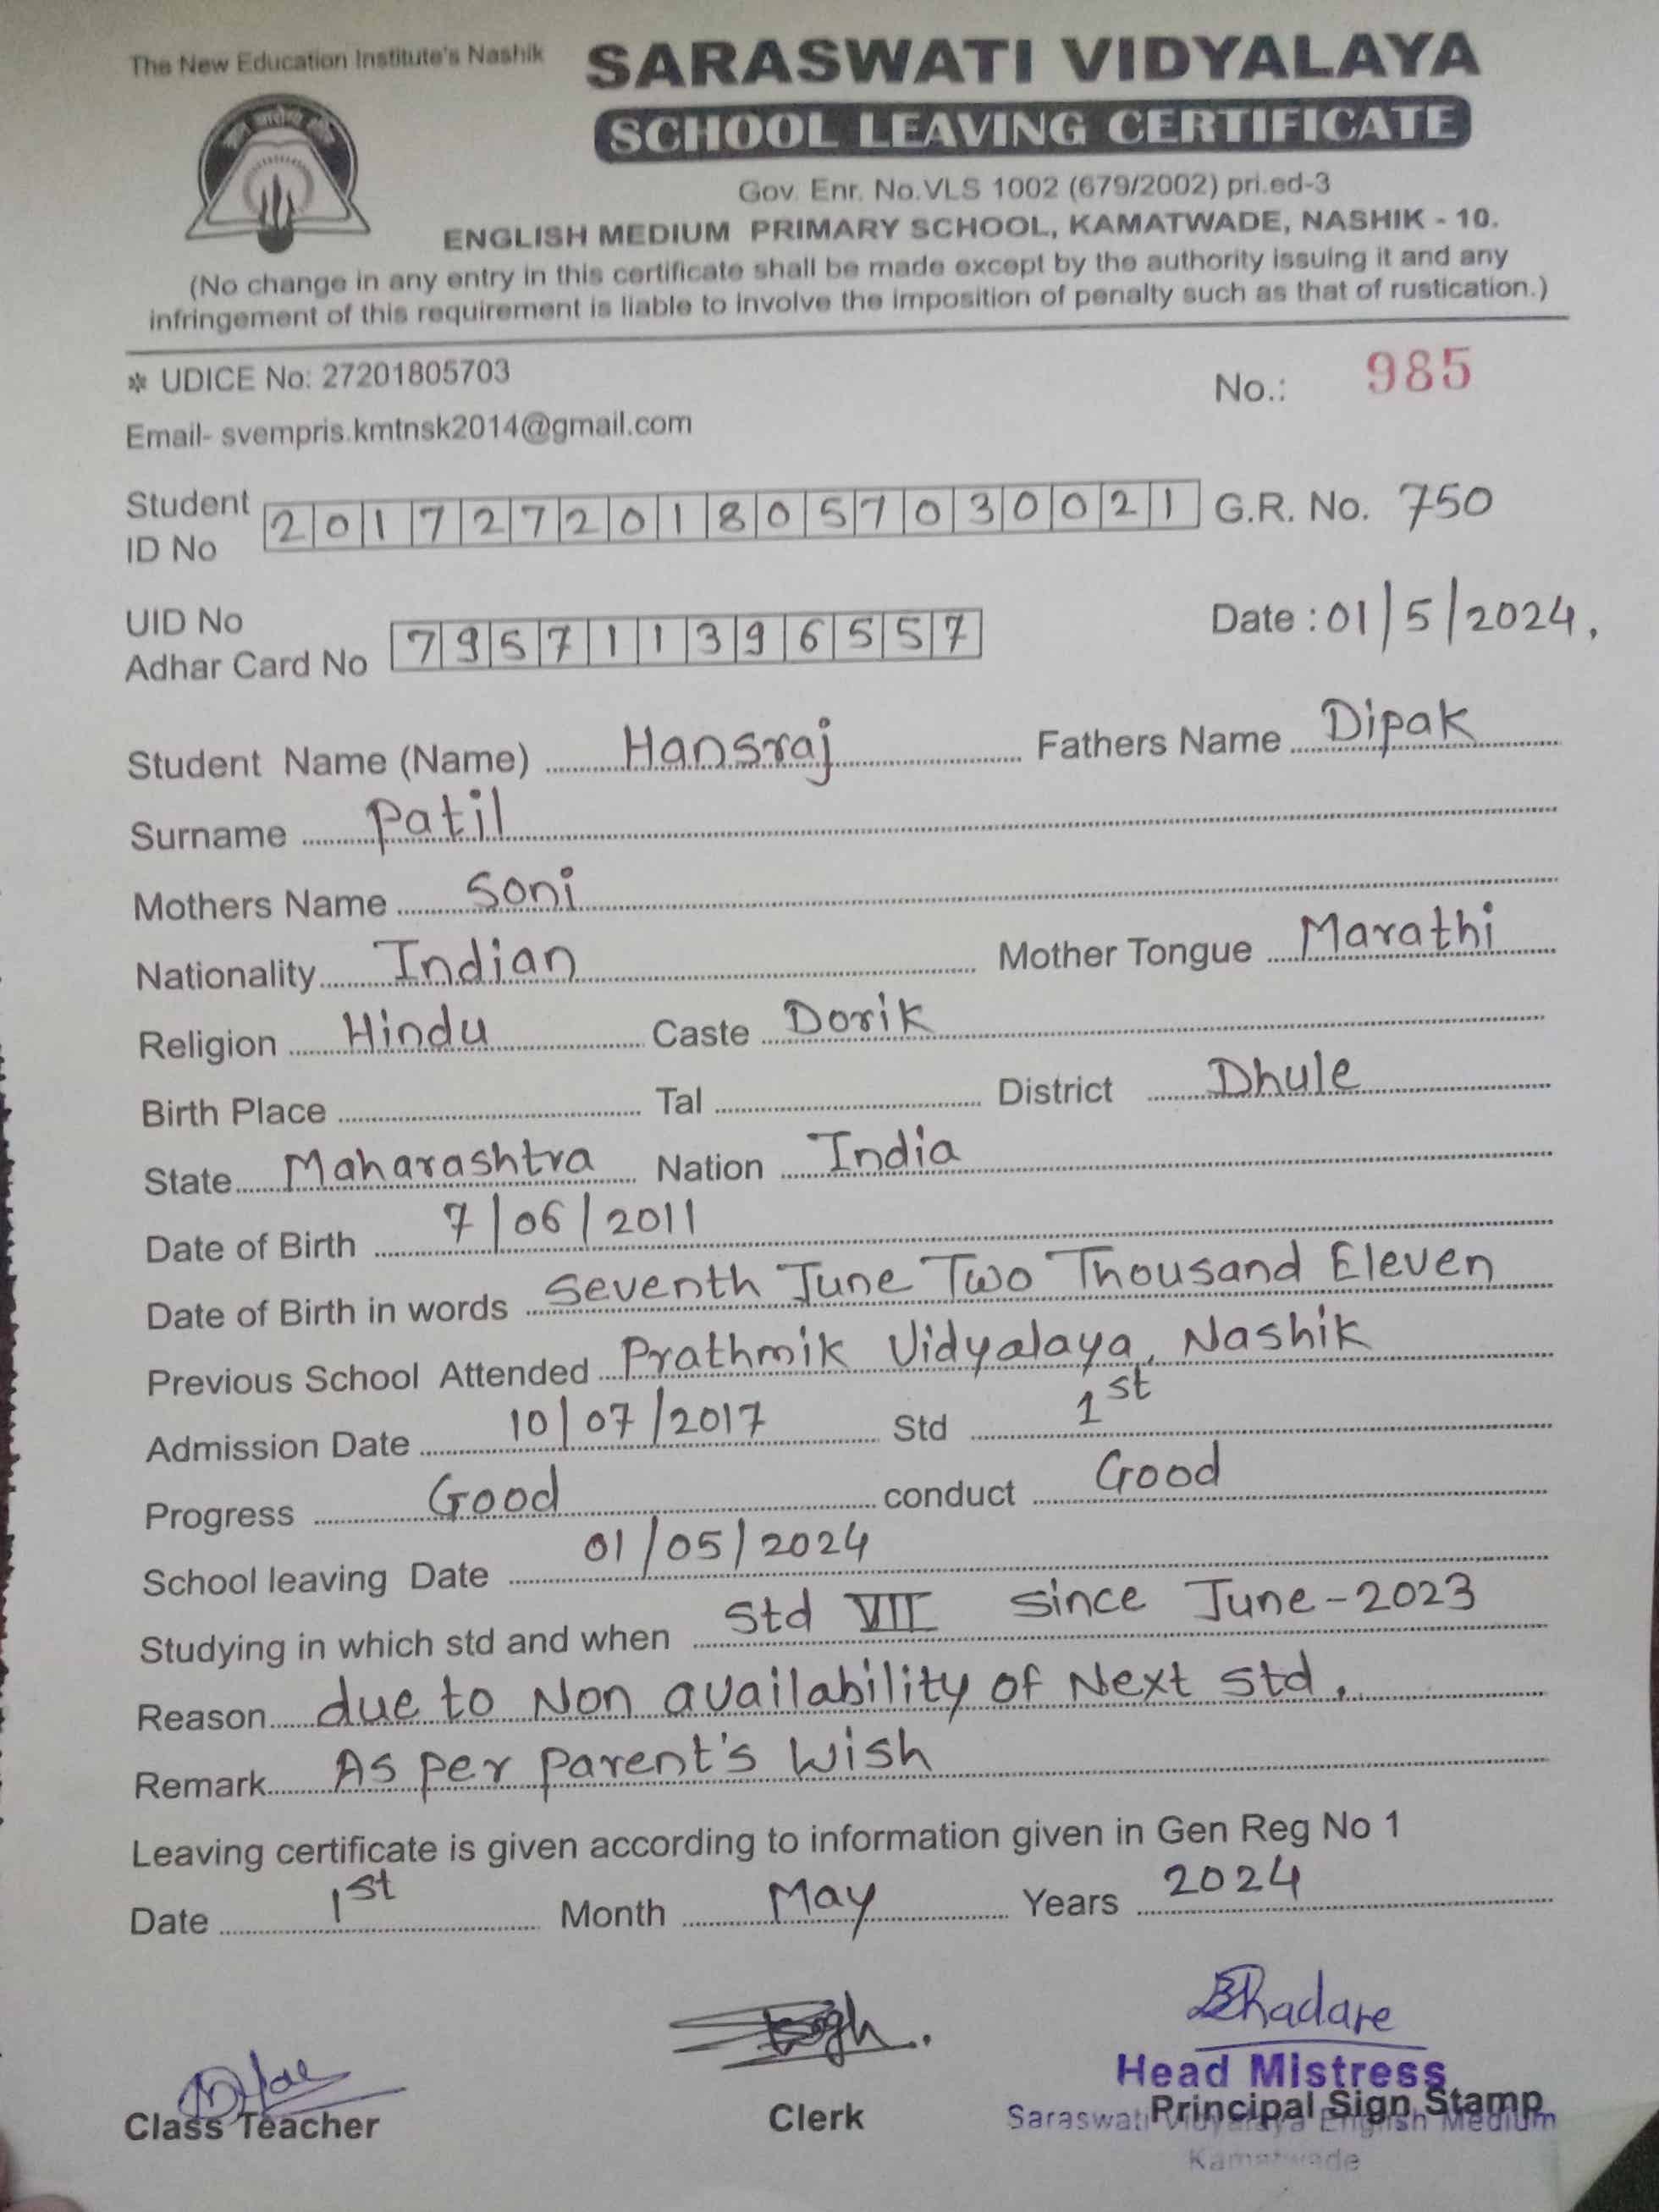 The New Education Institute's Nashik
SARASWATI VIDYALAYA
SCHOOL LEAVING CERTIFICATE
Gov. Enr. No.VLS 1002 (679/2002) pri.ed-3
ENGLISH MEDIUM PRIMARY SCHOOL, KAMATWADE, NASHIK - 10.
(No change in any entry in this certificate shall be made except by the authority issuing it and any
infringement of this requirement is liable to involve the imposition of penalty such as that of rustication.)
* UDICE No: 27201805703 No.: 985
Email- svempris.kmtnsk2014@gmail.com
Student ID No 2017272018057030021 G.R. No. 750
UID No Adhar Card No 795711396557 Date : 01/5/2024,
Student Name (Name) Hansraj Fathers Name Dipak
Surname Patil
Mothers Name Soni
Nationality Indian Mother Tongue Marathi
Religion Hindu Caste Dorik
Birth Place Tal District Dhule
State Maharashtra Nation India
Date of Birth 7/06/2011
Date of Birth in words Seventh June Two Thousand Eleven
Previous School Attended Prathmik Vidyalaya, Nashik
Admission Date 10/07/2017 Std 1st
Progress Good conduct Good
School leaving Date 01/05/2024
Studying in which std and when Std VII Since June-2023
Reason due to Non availability of Next Std.
Remark As per parent's Wish
Leaving certificate is given according to information given in Gen Reg No 1
Date 1st Month May Years 2024
Bhadare
Head Mistress
Class Teacher Clerk Principal Sign Stamp
Saraswati Vidyalaya English Medium
Kamatwade